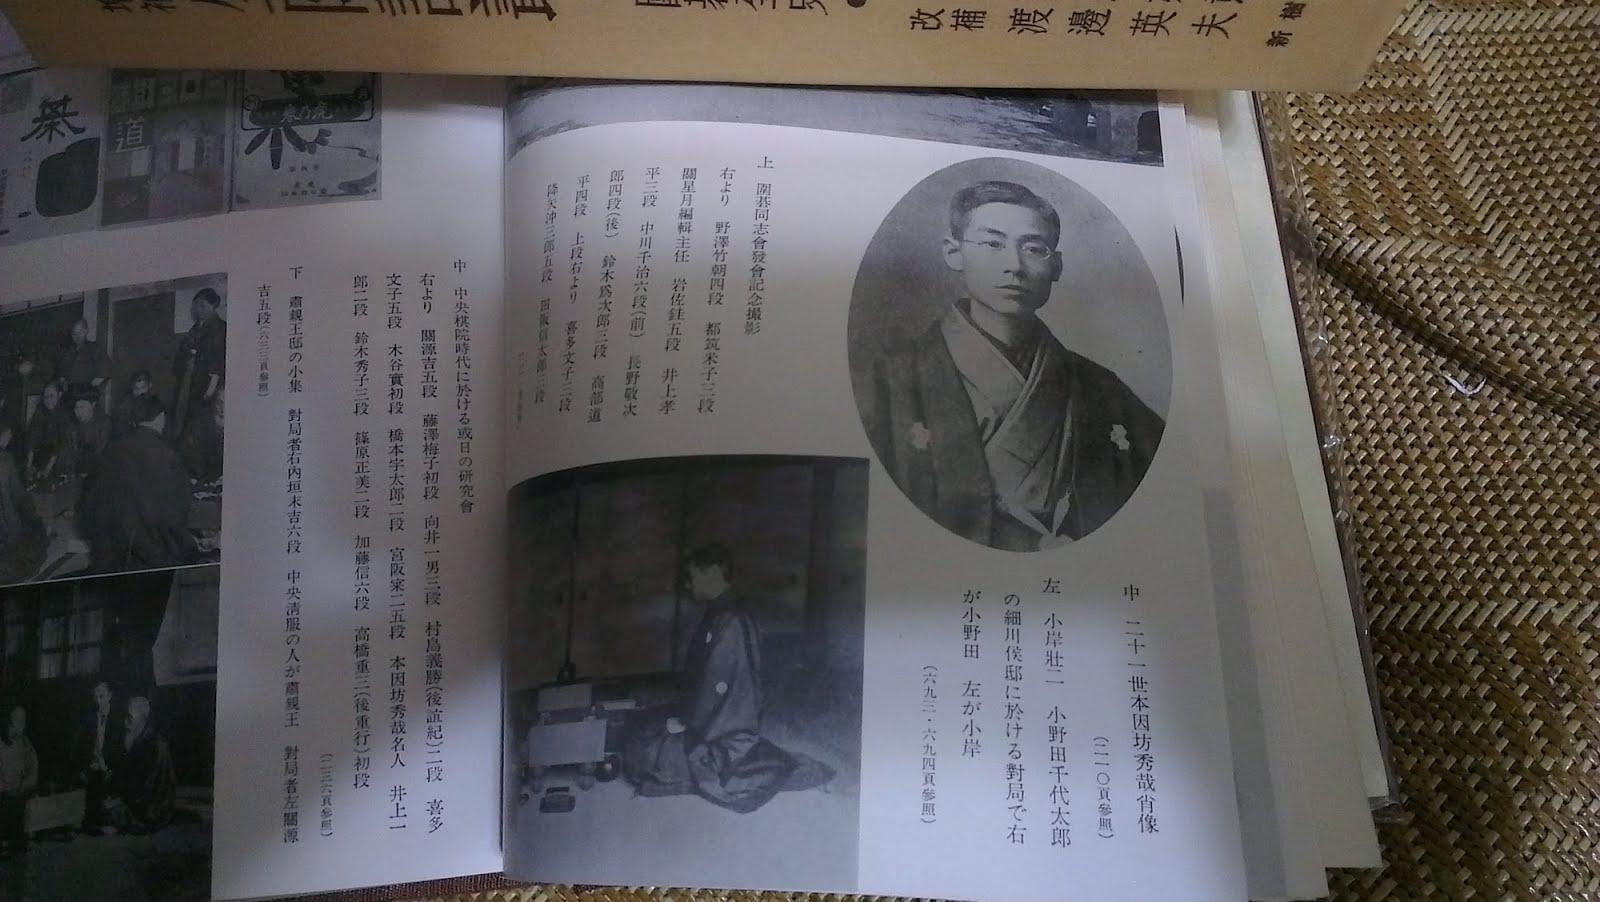 改補 渡邊英夫
新樹
中 二十一世本因坊秀哉肖像
(二一〇頁參照)
左 小岸壯二 小野田千代太郎
の細川侯邸に於ける對局で右
が小野田 左が小岸
(六九三・六九四頁參照)
上 圍碁同志會發會記念撮影
右より 野澤竹朝四段 都筑米子三段
關星月編輯主任 岩佐銈五段 井上孝
平三段 中川千治六段(前) 長野敬次
郎四段(後) 鈴木爲次郎三段 高部道
平四段 上段右より 喜多文子三段
隆矢沖三郎五段 田坂信太郎三段
中 中央棋院時代に於ける或日の研究會
右より 關源吉五段 藤澤梅子初段 向井一男三段 村島義勝(後誼紀)二段 喜多
文子五段 木谷實初段 橋本宇太郎二段 宮阪寀二五段 本因坊秀哉名人 井上一
郎二段 鈴木秀子三段 篠原正美二段 加藤信六段 高橋重三(後重行)初段
(二三六頁參照)
下 肅親王邸の小集 對局者右內垣末吉六段 中央淸服の人が肅親王 對局者左關源
吉五段(六三三頁參照)
道